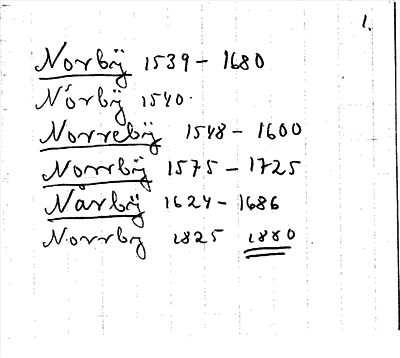 1.
Norbÿ 1539 - 1680
Nórbÿ 1540.
Norrebÿ 1548 - 1600
Norrbÿ 1575 - 1725
Nårbÿ 1624 - 1686
Norrby 1825 1880